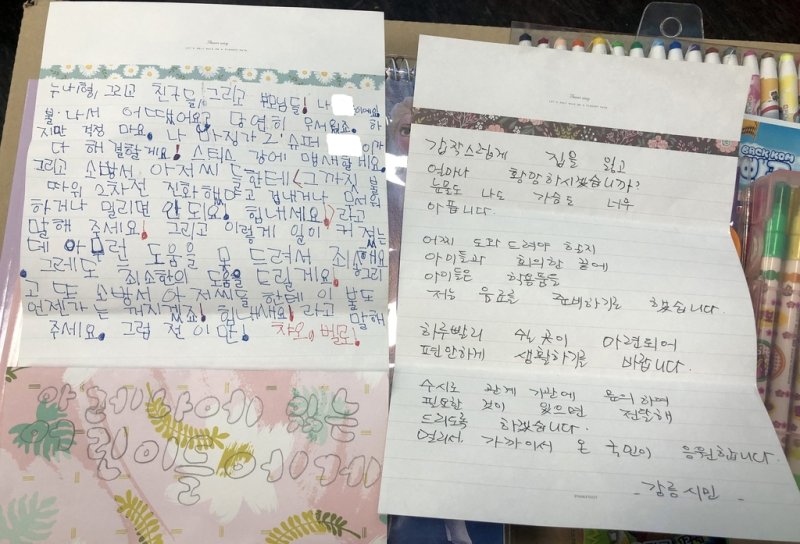 누나/형, 그리고 친구들, 그리고 부모님들! 나 이에요.
불·나서 어땠어요? 당연히 무서웠죠. 하
지만 걱정 마요. 나 마징가 Z, 슈퍼 이가
다 해결할게요! 스틱스 강에 맹세할게요.
그리고 소방서 아저씨들한테 <그까짓 불
따위 2차전 진화해 보내거나 무서워
하거나 밀리면 안되요! 힘내세요>라고
말해 주세요! 그리고 이렇게 일이 커저는
데 아무런 도움을 못 드려서 죄송해요
그레도 최소한의 도움을 드릴게요. 그리
고 또 소방서 아저씨들한테 이 불도
언젠가는 꺼지겠죠! 힘내세요! 라고 말해
주세요. 그럼 전 이만! 챠오, 벨로!
있는
갑작스럽게 집을 잃고
얼마나 황망하시겠습니까?
눈물도 나고 가슴도 너무
아픕니다.
어찌 도와드려야 할지
아이들과 회의한 끝에
아이들은 학용품을
저는 음료를 준비하기로 했습니다.
하루빨리 쉴 곳이 마련되어
편안하게 생활하기를 바랍니다.
수시로 관계 기관에 문의하여
필요한 것이 있으면 전달해
드리도록 하겠습니다.
멀리서 가까이서 온 국민이 응원합니다.
- 강릉 시민 -